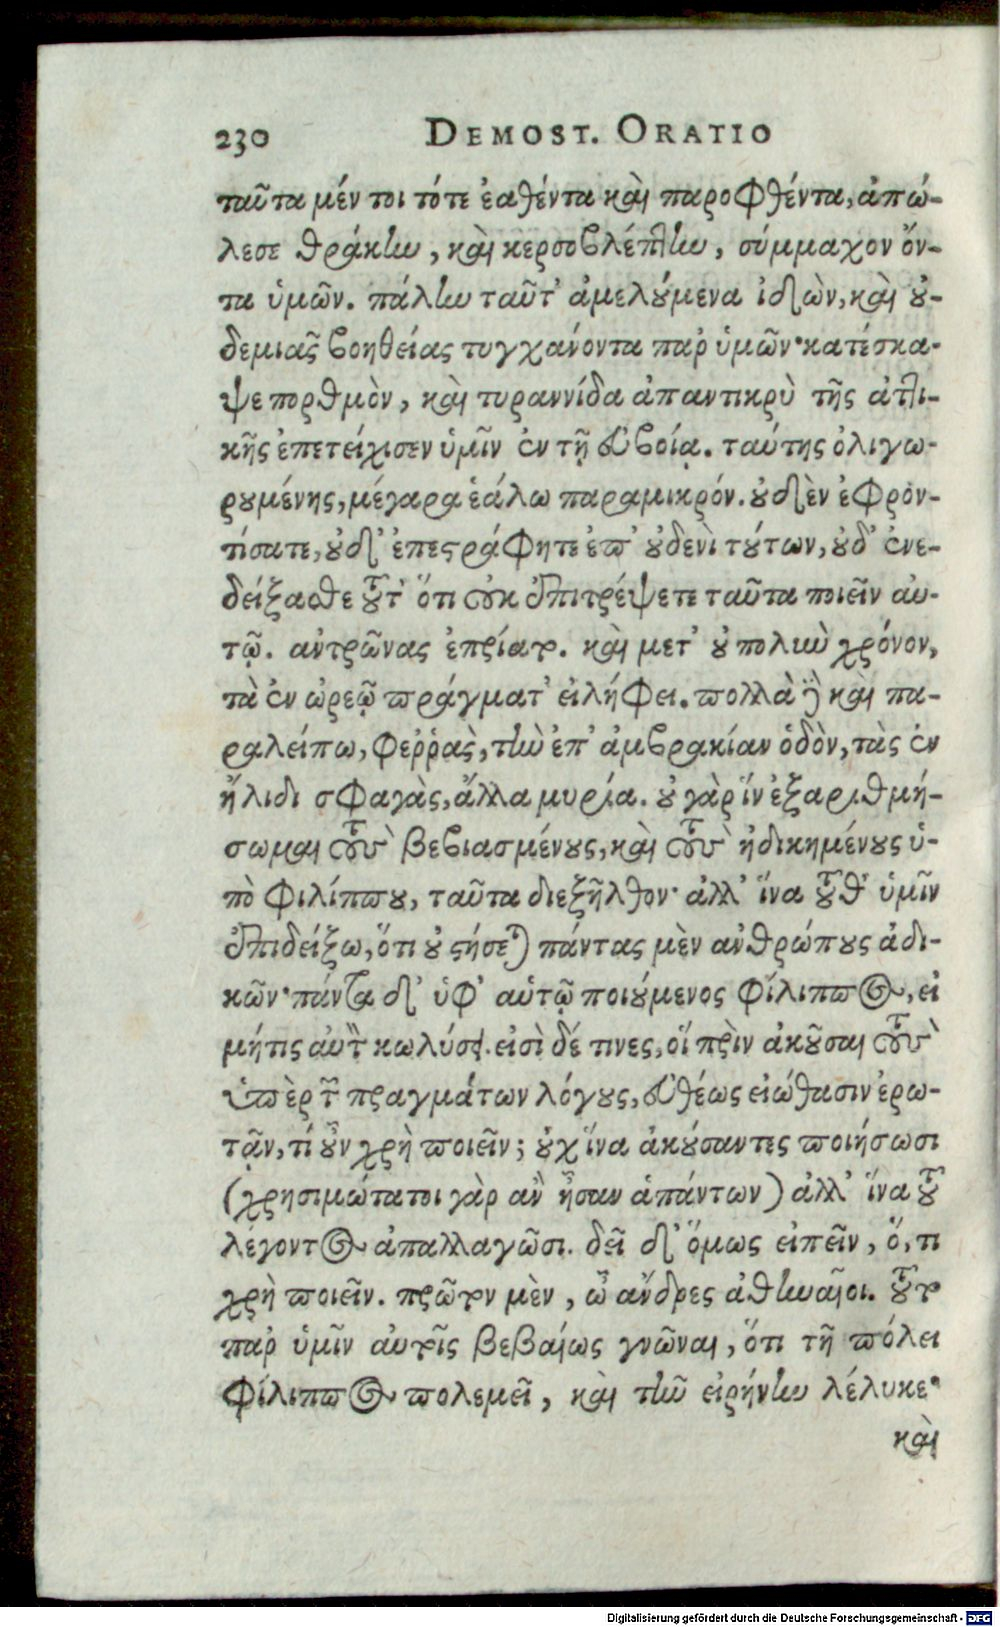 230 DEMOST. ORATIO
ταῦτα μέν τοι τότε ἐαθέντα καὶ παροφθέντα, ἀπώ-
λεσε θράκην, καὶ κερσοβλέπτην, σύμμαχον ὄν-
τα ὑμῶν. πάλιν ταῦτ' ἀμελούμενα ἰδὼν, καὶ οὐ-
δεμιᾶς βοηθείας τυγχάνοντα παρ' ὑμῶν· κατέσκα-
ψε πορθμὸν, καὶ τυραννίδα ἀπαντικρὺ τῆς ἀττι-
κῆς ἐπετείχισεν ὑμῖν ἐν τῇ εὐβοίᾳ. ταύτης ὀλιγω-
ρουμένης, μέγαρα ἑάλω παραμικρόν. οὐδὲν ἐφρον-
τίσατε, οὐδ' ἐπεστράφητε ἐπ' οὐδενὶ τούτων, οὐδ' ἐνε-
δείξασθε τοῦτ' ὅτι οὐκ ἐπιτρέψετε ταῦτα ποιεῖν αὐ-
τῷ. ἀντρῶνας ἐπρίατο. καὶ μετ' οὐ πολὺν χρόνον,
τὰ ἐν ὠρεῷ πράγματ' εἰλήφει. πολλὰ δὲ καὶ πα-
ραλείπω, φερρὰς, τὴν ἐπ' ἀμβρακίαν ὁδὸν, τὰς ἐν
ἤλιδι σφαγὰς, ἄλλα μυρία. οὐ γὰρ ἵν' ἐξαριθμή-
σωμαι τοὺς βεβιασμένους, καὶ τοὺς ἠδικημένους ὑ-
πὸ φιλίππου, ταῦτα διεξῆλθον· ἀλλ' ἵνα τοῦθ' ὑμῖν
ἐπιδείξω, ὅτι οὐ στήσεται πάντας μὲν ἀνθρώπους ἀδι-
κῶν· πάντα δ' ὑφ' αὑτῷ ποιούμενος φίλιππος, εἰ
μήτις αὐτὸν κωλύσει. εἰσὶ δέ τινες, οἳ πρὶν ἀκοῦσαι τοὺς
ὑπὲρ τῶν πραγμάτων λόγους, εὐθέως εἰώθασιν ἐρω-
τᾷν, τί οὖν χρὴ ποιεῖν; οὐχ ἵνα ἀκούσαντες ποιήσωσι
(χρησιμώτατοι γὰρ ἂν ἦσαν ἁπάντων) ἀλλ' ἵνα τοῦ
λέγοντος ἀπαλλαγῶσι. δεῖ δ' ὅμως εἰπεῖν, ὅ, τι
χρὴ ποιεῖν. πρῶτον μὲν, ὦ ἄνδρες ἀθηναῖοι. τοῦτο
παρ' ὑμῖν αὐτοῖς βεβαίως γνῶναι, ὅτι τῇ πόλει
φίλιππος πολεμεῖ, καὶ τὴν εἰρήνην λέλυκε·
καὶ
Digitalisierung gefördert durch die Deutsche Forschungsgemeinschaft - DFG